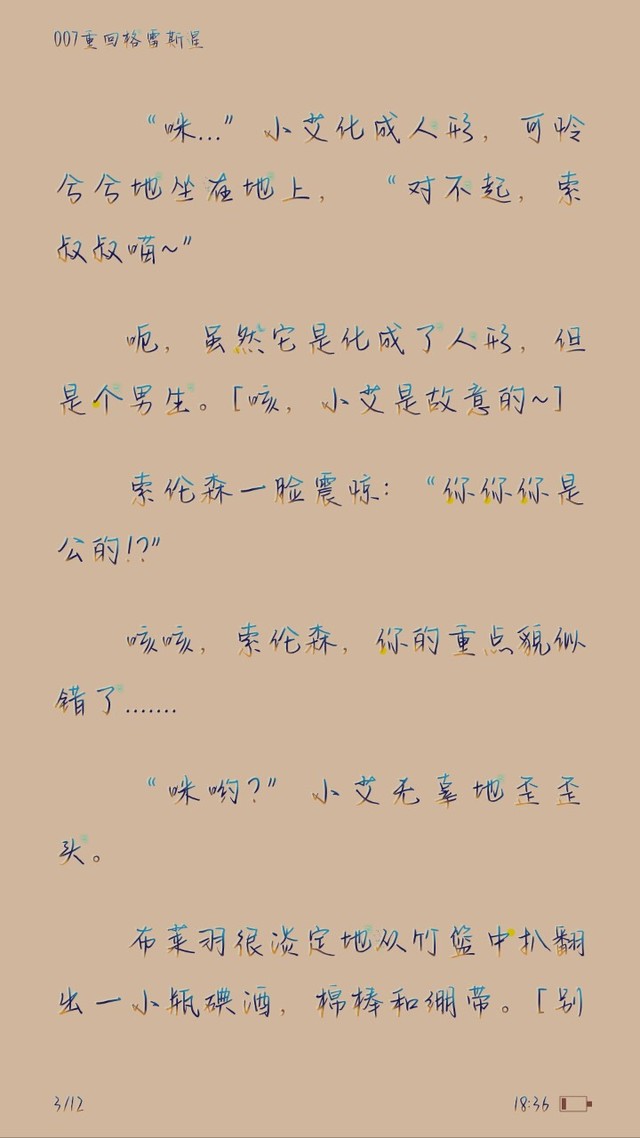 007重回格雷斯星
“咪...”小艾化成人形，可怜
兮兮地坐在地上，“对不起，索
叔叔喵~”
呃，虽然它是化成了人形，但
是个男生。[咳，小艾是故意的~]
索伦森一脸震惊：“你你你是
公的!?”
咳咳，索伦森，你的重点貌似
错了.......
“咪哟?”小艾无辜地歪歪
头。
布莱羽很淡定地从竹篮中扒翻
出一小瓶碘酒，棉棒和绷带。[别
3/12
18:36